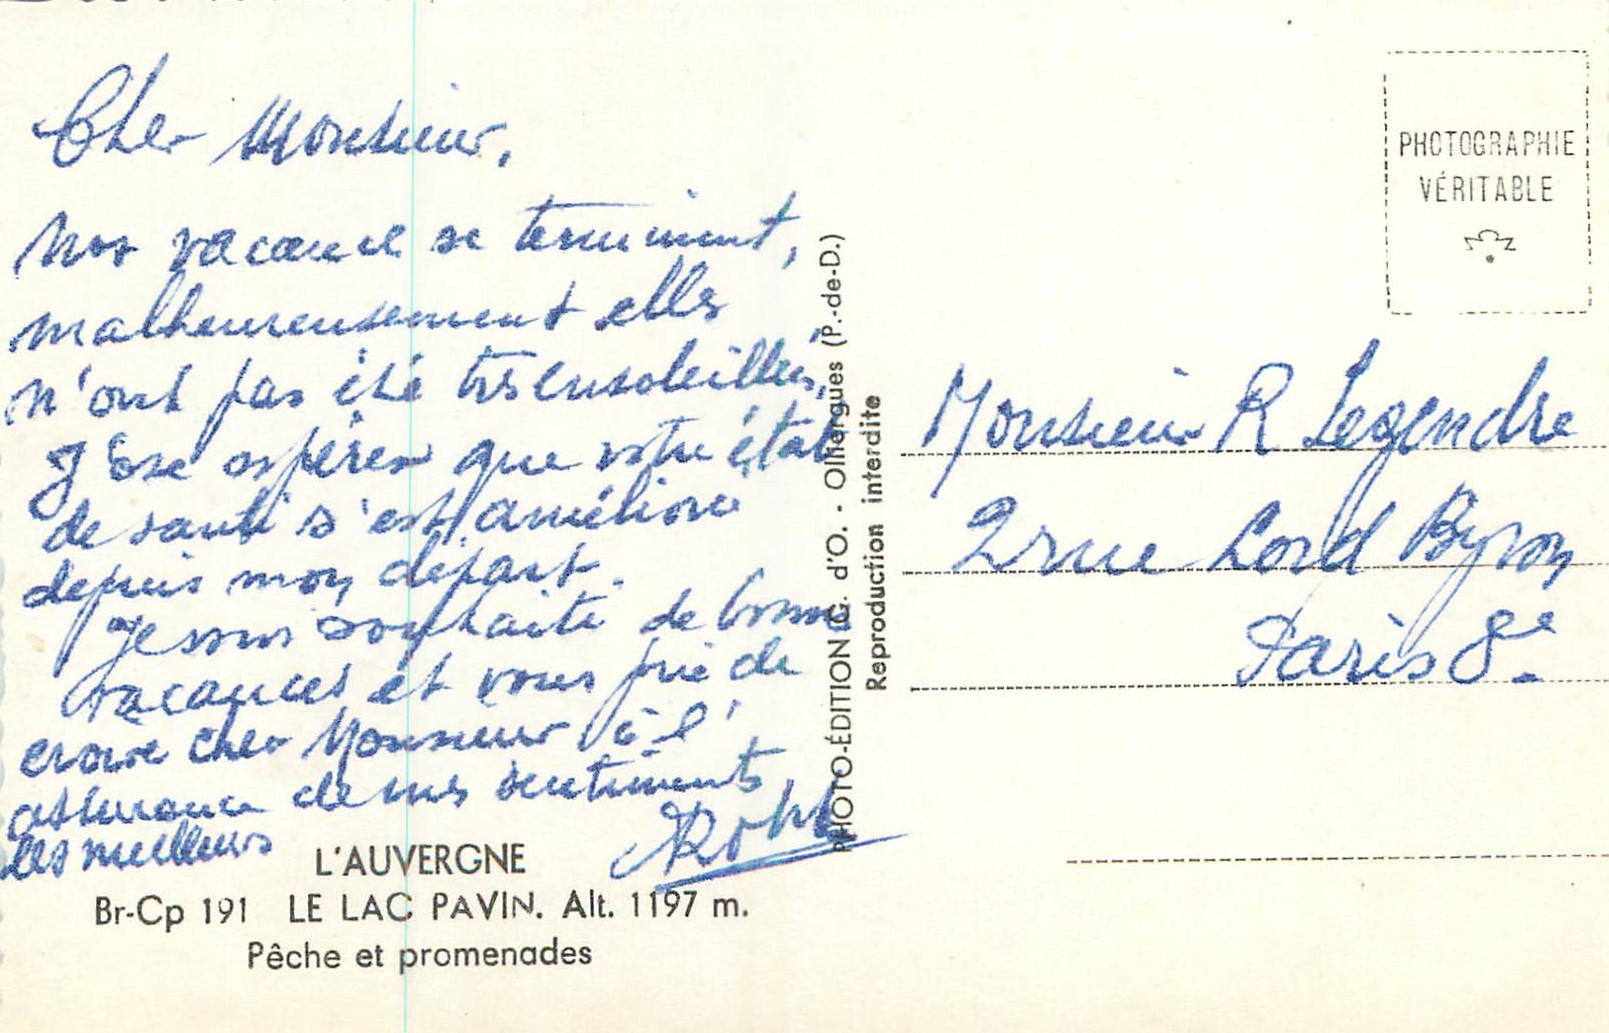 Cher Monsieur,
Nos vacance se terminent,
malheureusement elles
n'ont pas été très ensoleillées,
J'ose espérer que votre état
de santé s'est amélioré
depuis mon départ.
Je vous souhaite de bonne
vacances et vous prie de
croire cher Monsieur à l'
assurance de mes sentiments
les meilleurs
L'AUVERGNE
Br-Cp 191 LE LAC PAVIN. Alt. 1197 m.
Pêche et promenades
PHOTO-ÉDITION G. d'O. - Olliergues (P.-de-D.)
Reproduction interdite
PHOTOGRAPHIE
VÉRITABLE
Monsieur R Legendre
2 rue Lord Byron
Paris 8e